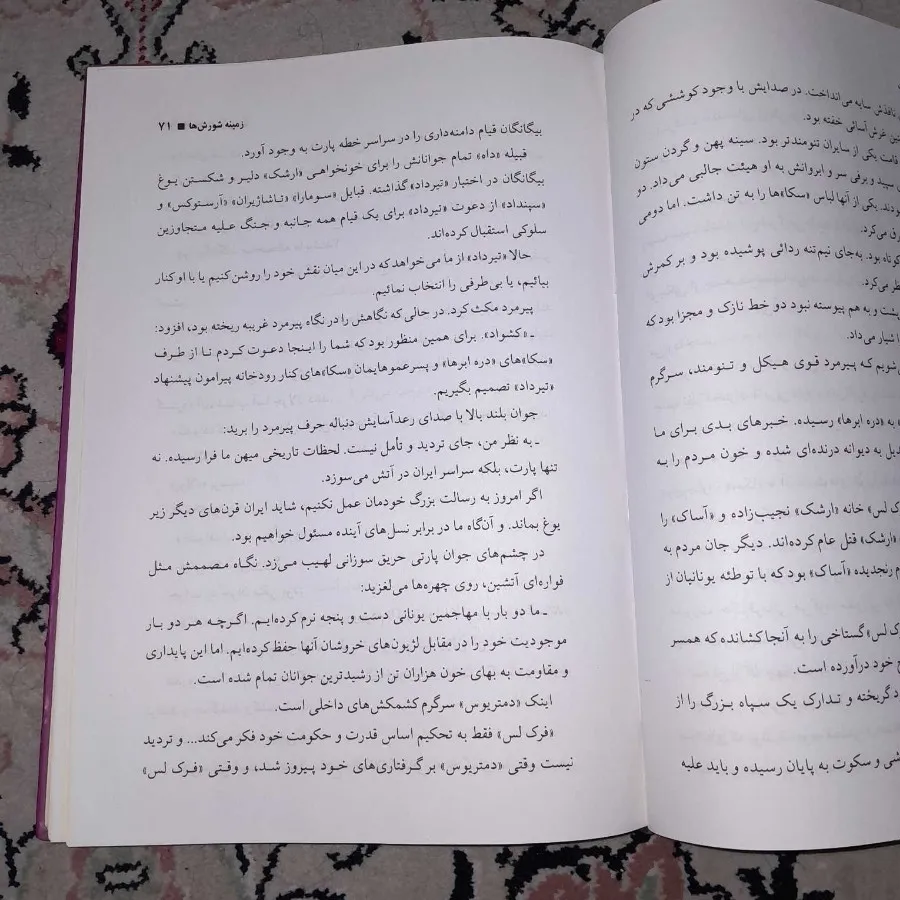 نافذش سایه می‌انداخت. در صدایش با وجود کوششی که در
غرش آسائی خفته بود.
قامت یکی از سایران تنومندتر بود. سینه پهن و گردن ستون
سپید و برفی سر و ابروانش به او هیئت جالبی می‌داد. دو
بودند. یکی از آنها لباس «سکا»ها را به تن داشت. اما دومی
می‌کرد.
کوتاه بود. به‌جای نیم‌تنه ردائی پوشیده بود و بر کمرش
نظر می‌کرد.
پشت و به هم پیوسته نبود دو خط نازک و مجزا بود که
را شیار می‌داد.
می‌شویم که پیرمرد قوی هیکل و تنومند، سرگرم
به «دره ابرها» رسیده. خبرهای بدی برای ما
تبدیل به دیوانه درنده‌ای شده و خون مردم را به
«فرک لس» خانه «ارشک» نجیب‌زاده و «آساک» را
«ارشک» قتل عام کرده‌اند. دیگر جان مردم به
رنجدیده «آساک» بود که با توطئه یونانیان از
«فرک لس» گستاخی را به آنجا کشانده که همسر
خود درآورده است.
گریخته و تدارک یک سپاه بزرگ را از
و سکوت به پایان رسیده و باید علیه
زمینه شورش‌ها ■ ۷۱
بیگانگان قیام دامنه‌داری را در سراسر خطه پارت به وجود آورد.
قبیله «داه» تمام جوانانش را برای خونخواهی «ارشک» دلیر و شکستن یوغ
بیگانگان در اختیار «تیرداد» گذاشته. قبایل «سومارا» «تاشاژیران» «آرستوکس» و
«سپنداد» از دعوت «تیرداد» برای یک قیام همه جانبه و جنگ علیه متجاوزین
سلوکی استقبال کرده‌اند.
حالا «تیرداد» از ما می‌خواهد که در این میان نقش خود را روشن کنیم یا با او کنار
بیائیم، یا بی‌طرفی را انتخاب نمائیم.
پیرمرد مکث کرد. در حالی‌که نگاهش را در نگاه پیرمرد غریبه ریخته بود، افزود:
ـ «کشواد». برای همین منظور بود که شما را اینجا دعوت کردم تا از طرف
«سکا»های «دره ابرها» و پسرعموهایمان «سکا»های کنار رودخانه پیرامون پیشنهاد
«تیرداد» تصمیم بگیریم.
جوان بلند بالا با صدای رعدآسایش دنباله حرف پیرمرد را برید:
ـ به نظر من، جای تردید و تأمل نیست. لحظات تاریخی میهن ما فرا رسیده. نه
تنها پارت، بلکه سراسر ایران در آتش می‌سوزد.
اگر امروز به رسالت بزرگ خودمان عمل نکنیم، شاید ایران قرن‌های دیگر زیر
یوغ بماند. و آن‌گاه ما در برابر نسل‌های آینده مسئول خواهیم بود.
در چشم‌های جوان پارتی حریق سوزانی لهیب می‌زد. نگاه مصممش مثل
فواره‌ای آتشین، روی چهره‌ها می‌لغزید:
ـ ما دو بار با مهاجمین یونانی دست و پنجه نرم کرده‌ایم. اگرچه هر دو بار
موجودیت خود را در مقابل لژیون‌های خروشان آنها حفظ کرده‌ایم. اما این پایداری
و مقاومت به بهای خون هزاران تن از رشیدترین جوانان تمام شده است.
اینک «دمتریوس» سرگرم کشمکش‌های داخلی است.
«فرک لس» فقط به تحکیم اساس قدرت و حکومت خود فکر می‌کند... و تردید
نیست وقتی «دمتریوس» بر گرفتاری‌های خود پیروز شد، و وقتی «فرک لس»